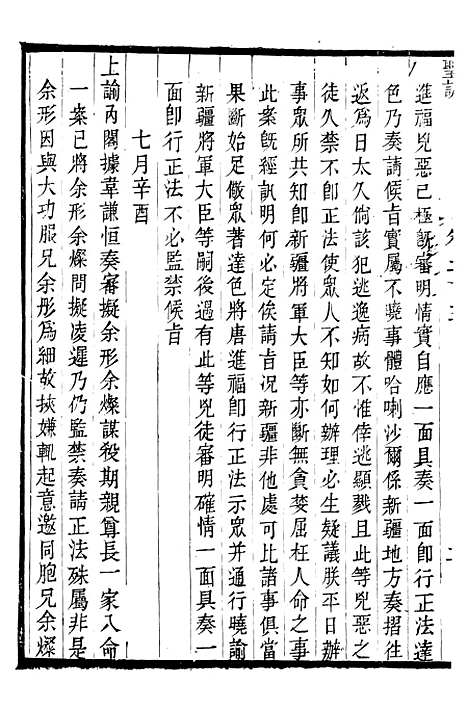 進福兇惡已極旣審明情實自應一面具奏一面卽行正法達
色乃奏請候旨實屬不曉事體哈喇沙爾係新疆地方奏摺往
返爲日太久倘該犯逃逸病故不惟倖逃顯戮且此等兇惡之
徒久禁不卽正法使眾人不知如何辦理必生疑議朕平日辦
事眾所共知卽新疆將軍大臣等亦斷無貪婪屈枉人命之事
此案旣經訊明何必定俟請旨況新疆非他處可比諸事俱當
果斷始足儆眾著達色將唐進福卽行正法示眾并通行曉諭
新疆將軍大臣等嗣後遇有此等兇徒審明確情一面具奏一
面卽行正法不必監禁候旨
七月辛酉
上諭內閣據韋謙恒奏審擬余形余燦謀殺期親尊長一家八命
一案已將余形余燦問擬凌遲乃仍監禁奏請正法殊屬非是
余形因與大功服兄余彤爲細故挾嫌輒起意邀同胞兄余燦